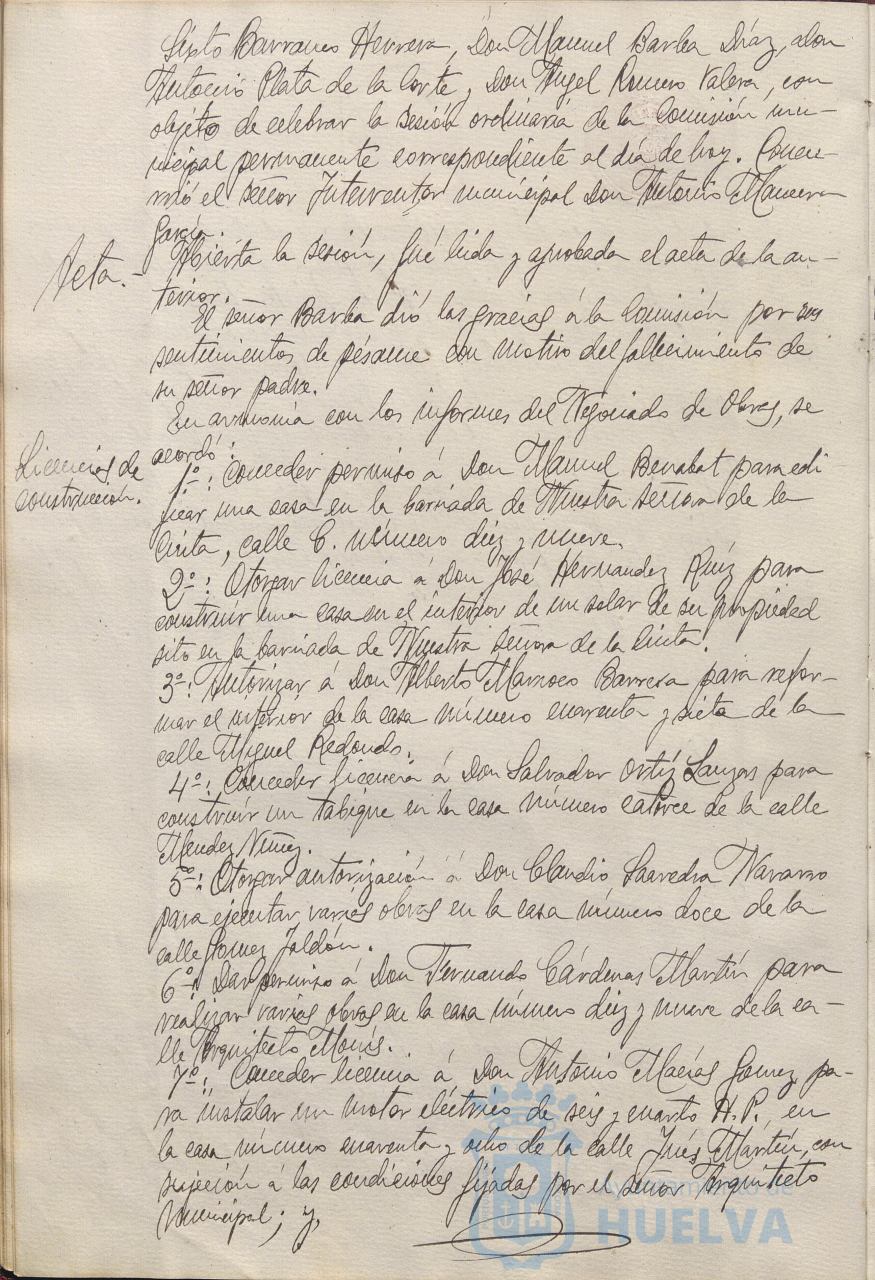 Sixto Barranco Herrera, Don Manuel Barba Díaz, Don
Antonio Plata de la Corte y Don Angel Romero Valera, con
objeto de celebrar la sesión ordinaria de la Comisión mu-
nicipal permanente correspondiente al día de hoy. Concu-
rrió el señor Interventor municipal Don Antonio
García.
Acta.- Abierta la sesión, fué leida y aprobada el acta de la an-
terior.
El señor Barba dió las gracias á la Comisión por sus
sentimientos de pésame con motivo del fallecimiento de
su señor padre.
En armonía con los informes del Negociado de Obras, se
acordó:
Licencias de
construcción.
1º: Conceder permiso á Don Manuel Benabat para edi
ficar una casa en la barriada de Nuestra Señora de la
Cinta, calle C. número diez y nueve.
2º: Otorgar licencia á Don José Hernandez Ruíz para
construir una casa en el interior de un solar de su propiedad
sito en la barriada de Nuestra Señora de la Cinta.
3º: Autorizar á Don Alberto Barrera para refor-
mar el interior de la casa número cuarenta y siete de la
calle Miguel Redondo.
4º: Conceder licencia á Don Salvador Ortíz para
construir un tabique en la casa número catorce de la calle
Mendez Nuñez.
5º: Otorgar autorización á Don Claudio Saavedra Navarro
para ejecutar varias obras en la casa número doce de la
calle Gomez Jaldón.
6º: Dar permiso á Don Fernando Cárdenas Martín para
realizar varias obras en la casa número diez y nueve de la ca-
lle Arquitecto Monís.
7º: Conceder licencia á Don Antonio Macías Gomez pa-
ra instalar un motor eléctrico de seis y cuarto H.P. en
la casa número cuarenta y ocho de la calle Inés Martín, con
sujeción á las condiciones fijadas por el señor Arquitecto
Municipal; y,
Ayuntamiento de
HUELVA